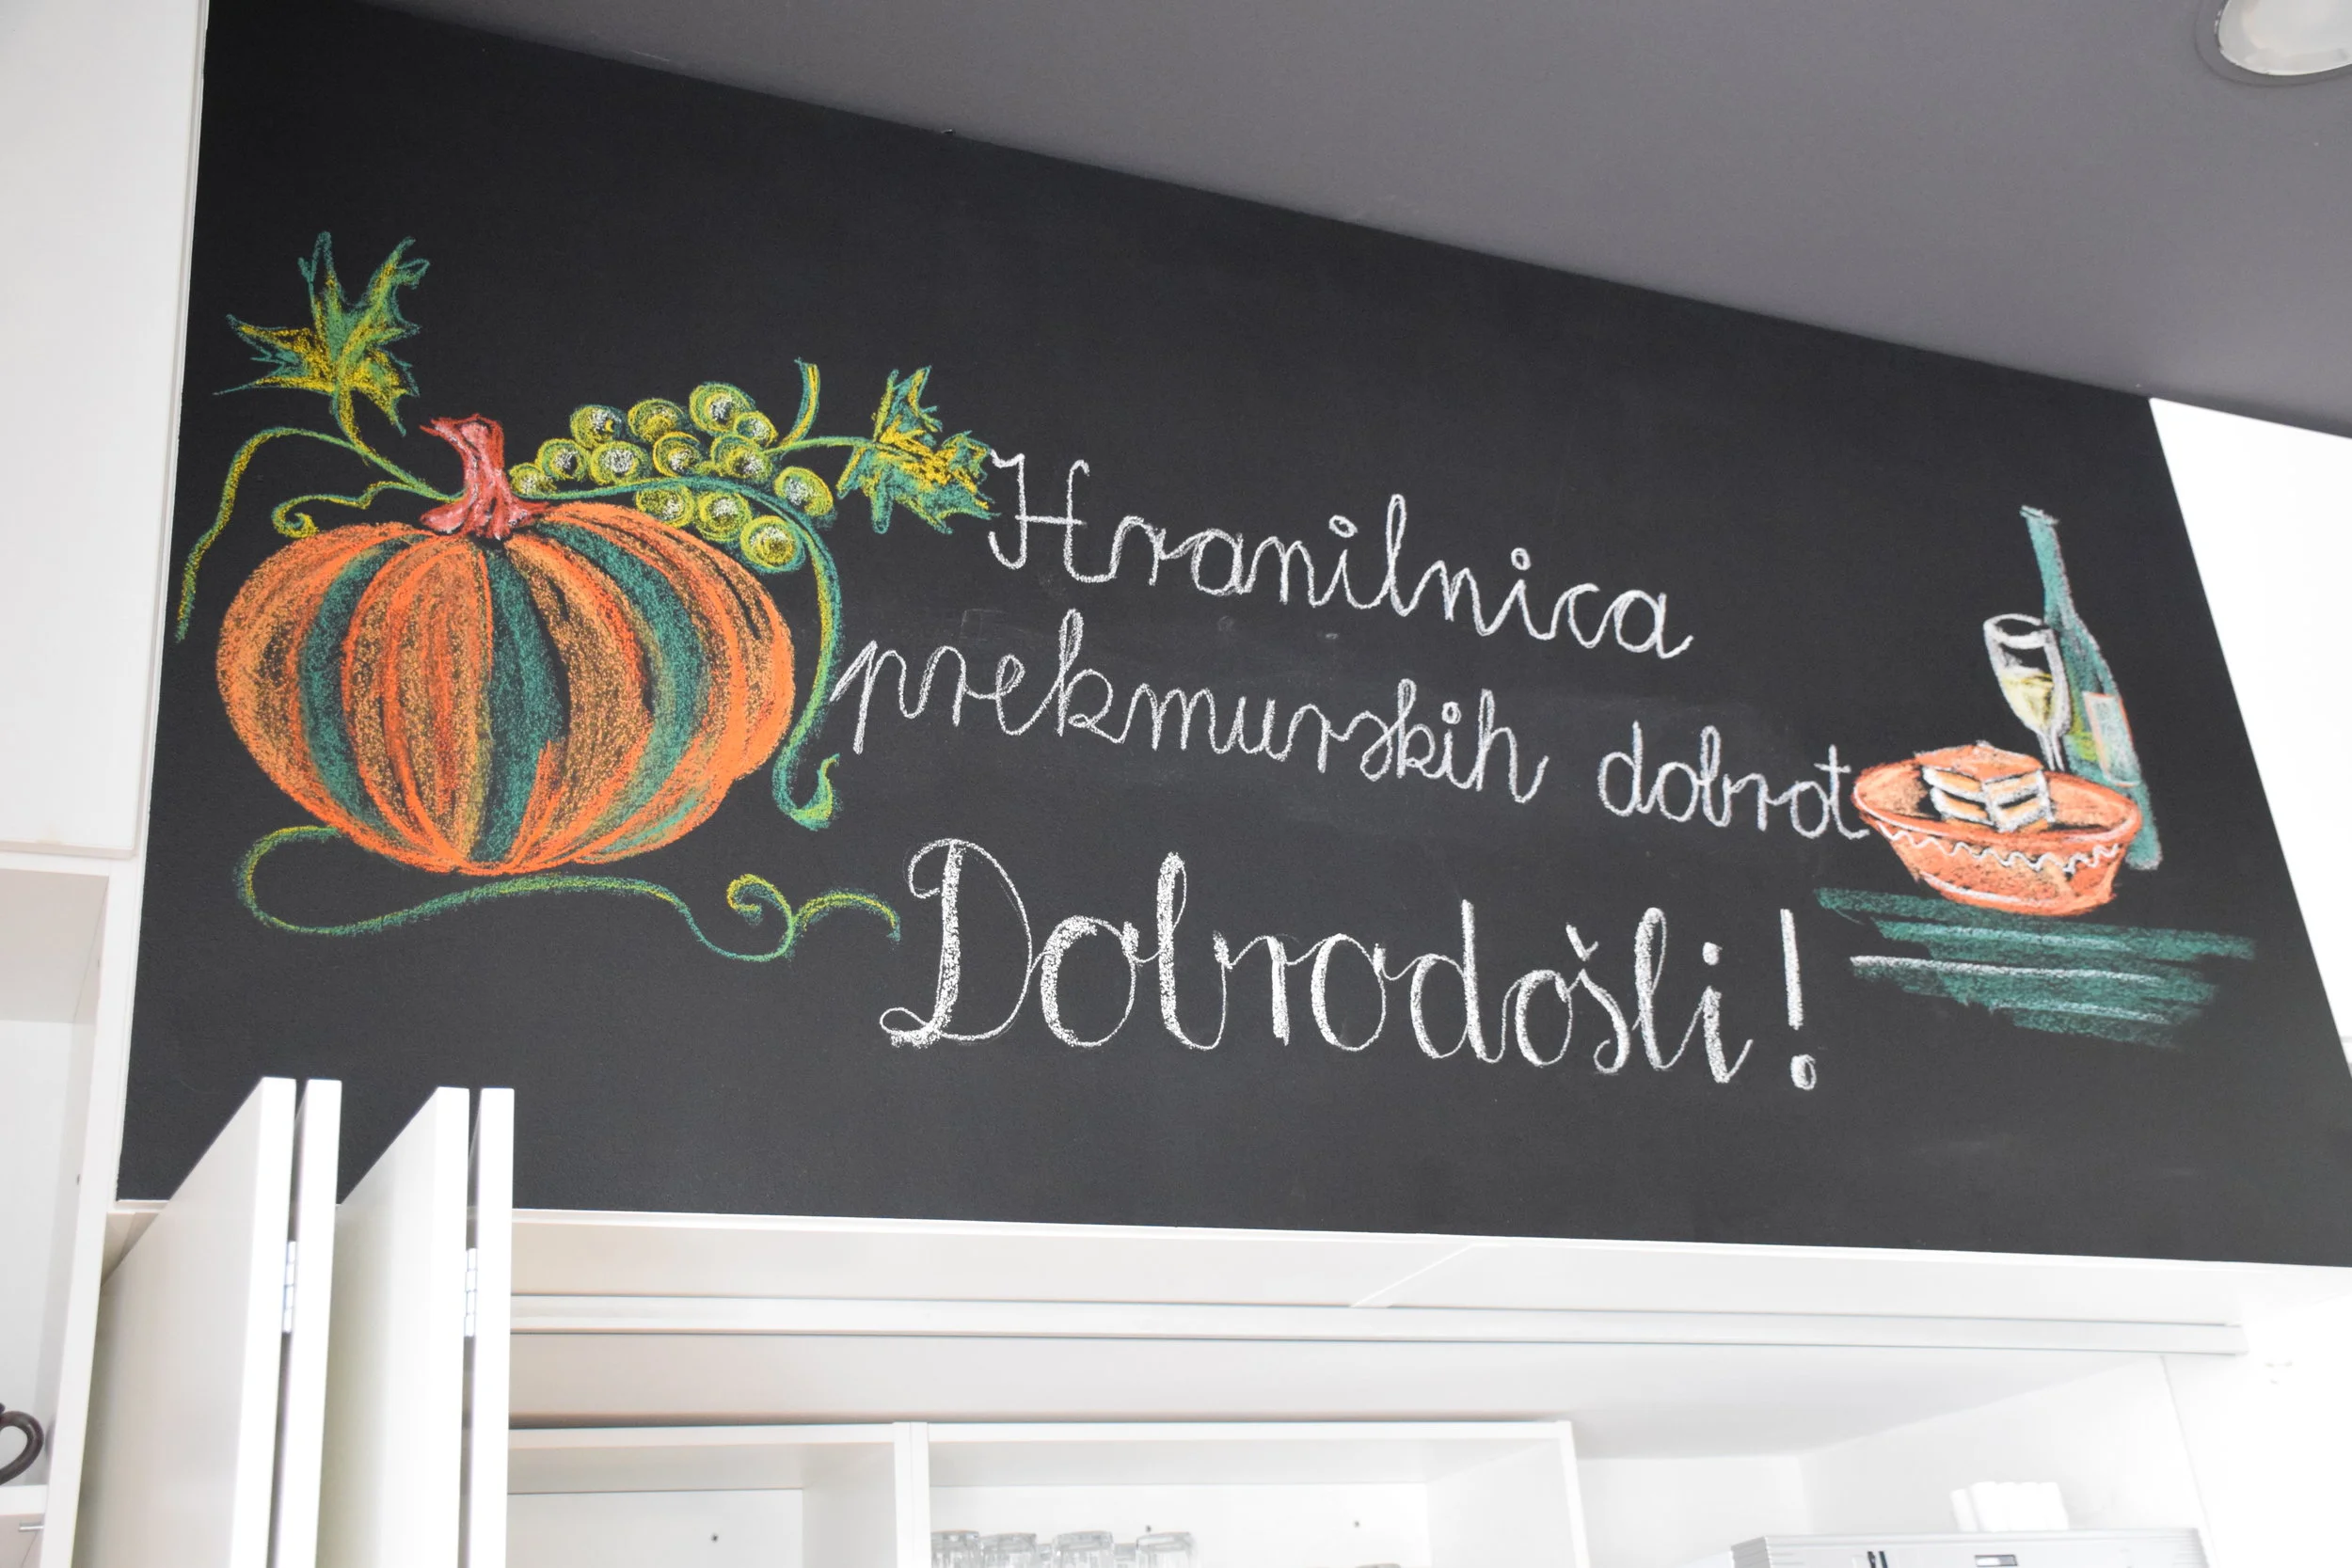 Hranilnica
prekmurskih dobrot
Dobrodošli!